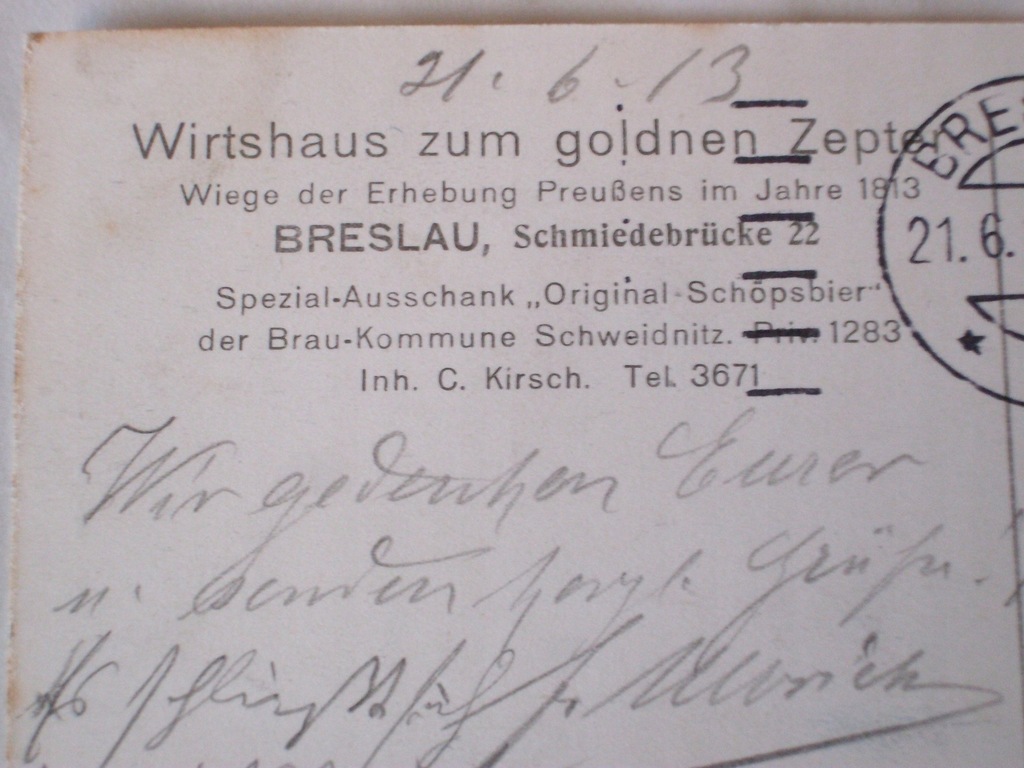 21. 6. 13
Wirtshaus zum goldnen Zepter
Wiege der Erhebung Preußens im Jahre 1813
BRESLAU, Schmiedebrücke 22
Spezial-Ausschank „Original-Schöpsbier“
der Brau-Kommune Schweidnitz. Priv. 1283
Inh. C. Kirsch. Tel. 3671
BRE
21. 6.
Wir gedenken Eurer
u. senden herzl. Grüße.
Es schließt sich